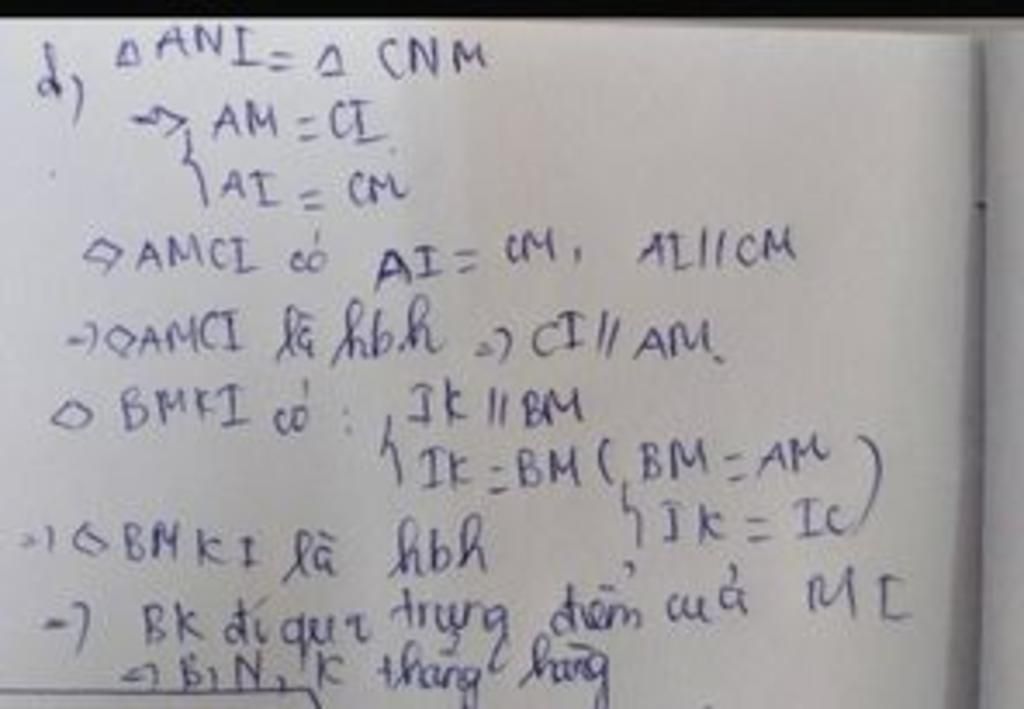 d, Δ ANI = Δ CNM
=> { AM = CI
AI = CM
◇ AMCI có AI = CM, AI // CM
=> ◇ AMCI là hbh => CI // AM.
◇ BMKI có : { IK // BM
IK = BM ( { BM = AM
IK = IC )
=> ◇ BMKI là hbh
=> BK đi qua trung điểm của MI
=> B, N, K thẳng hàng